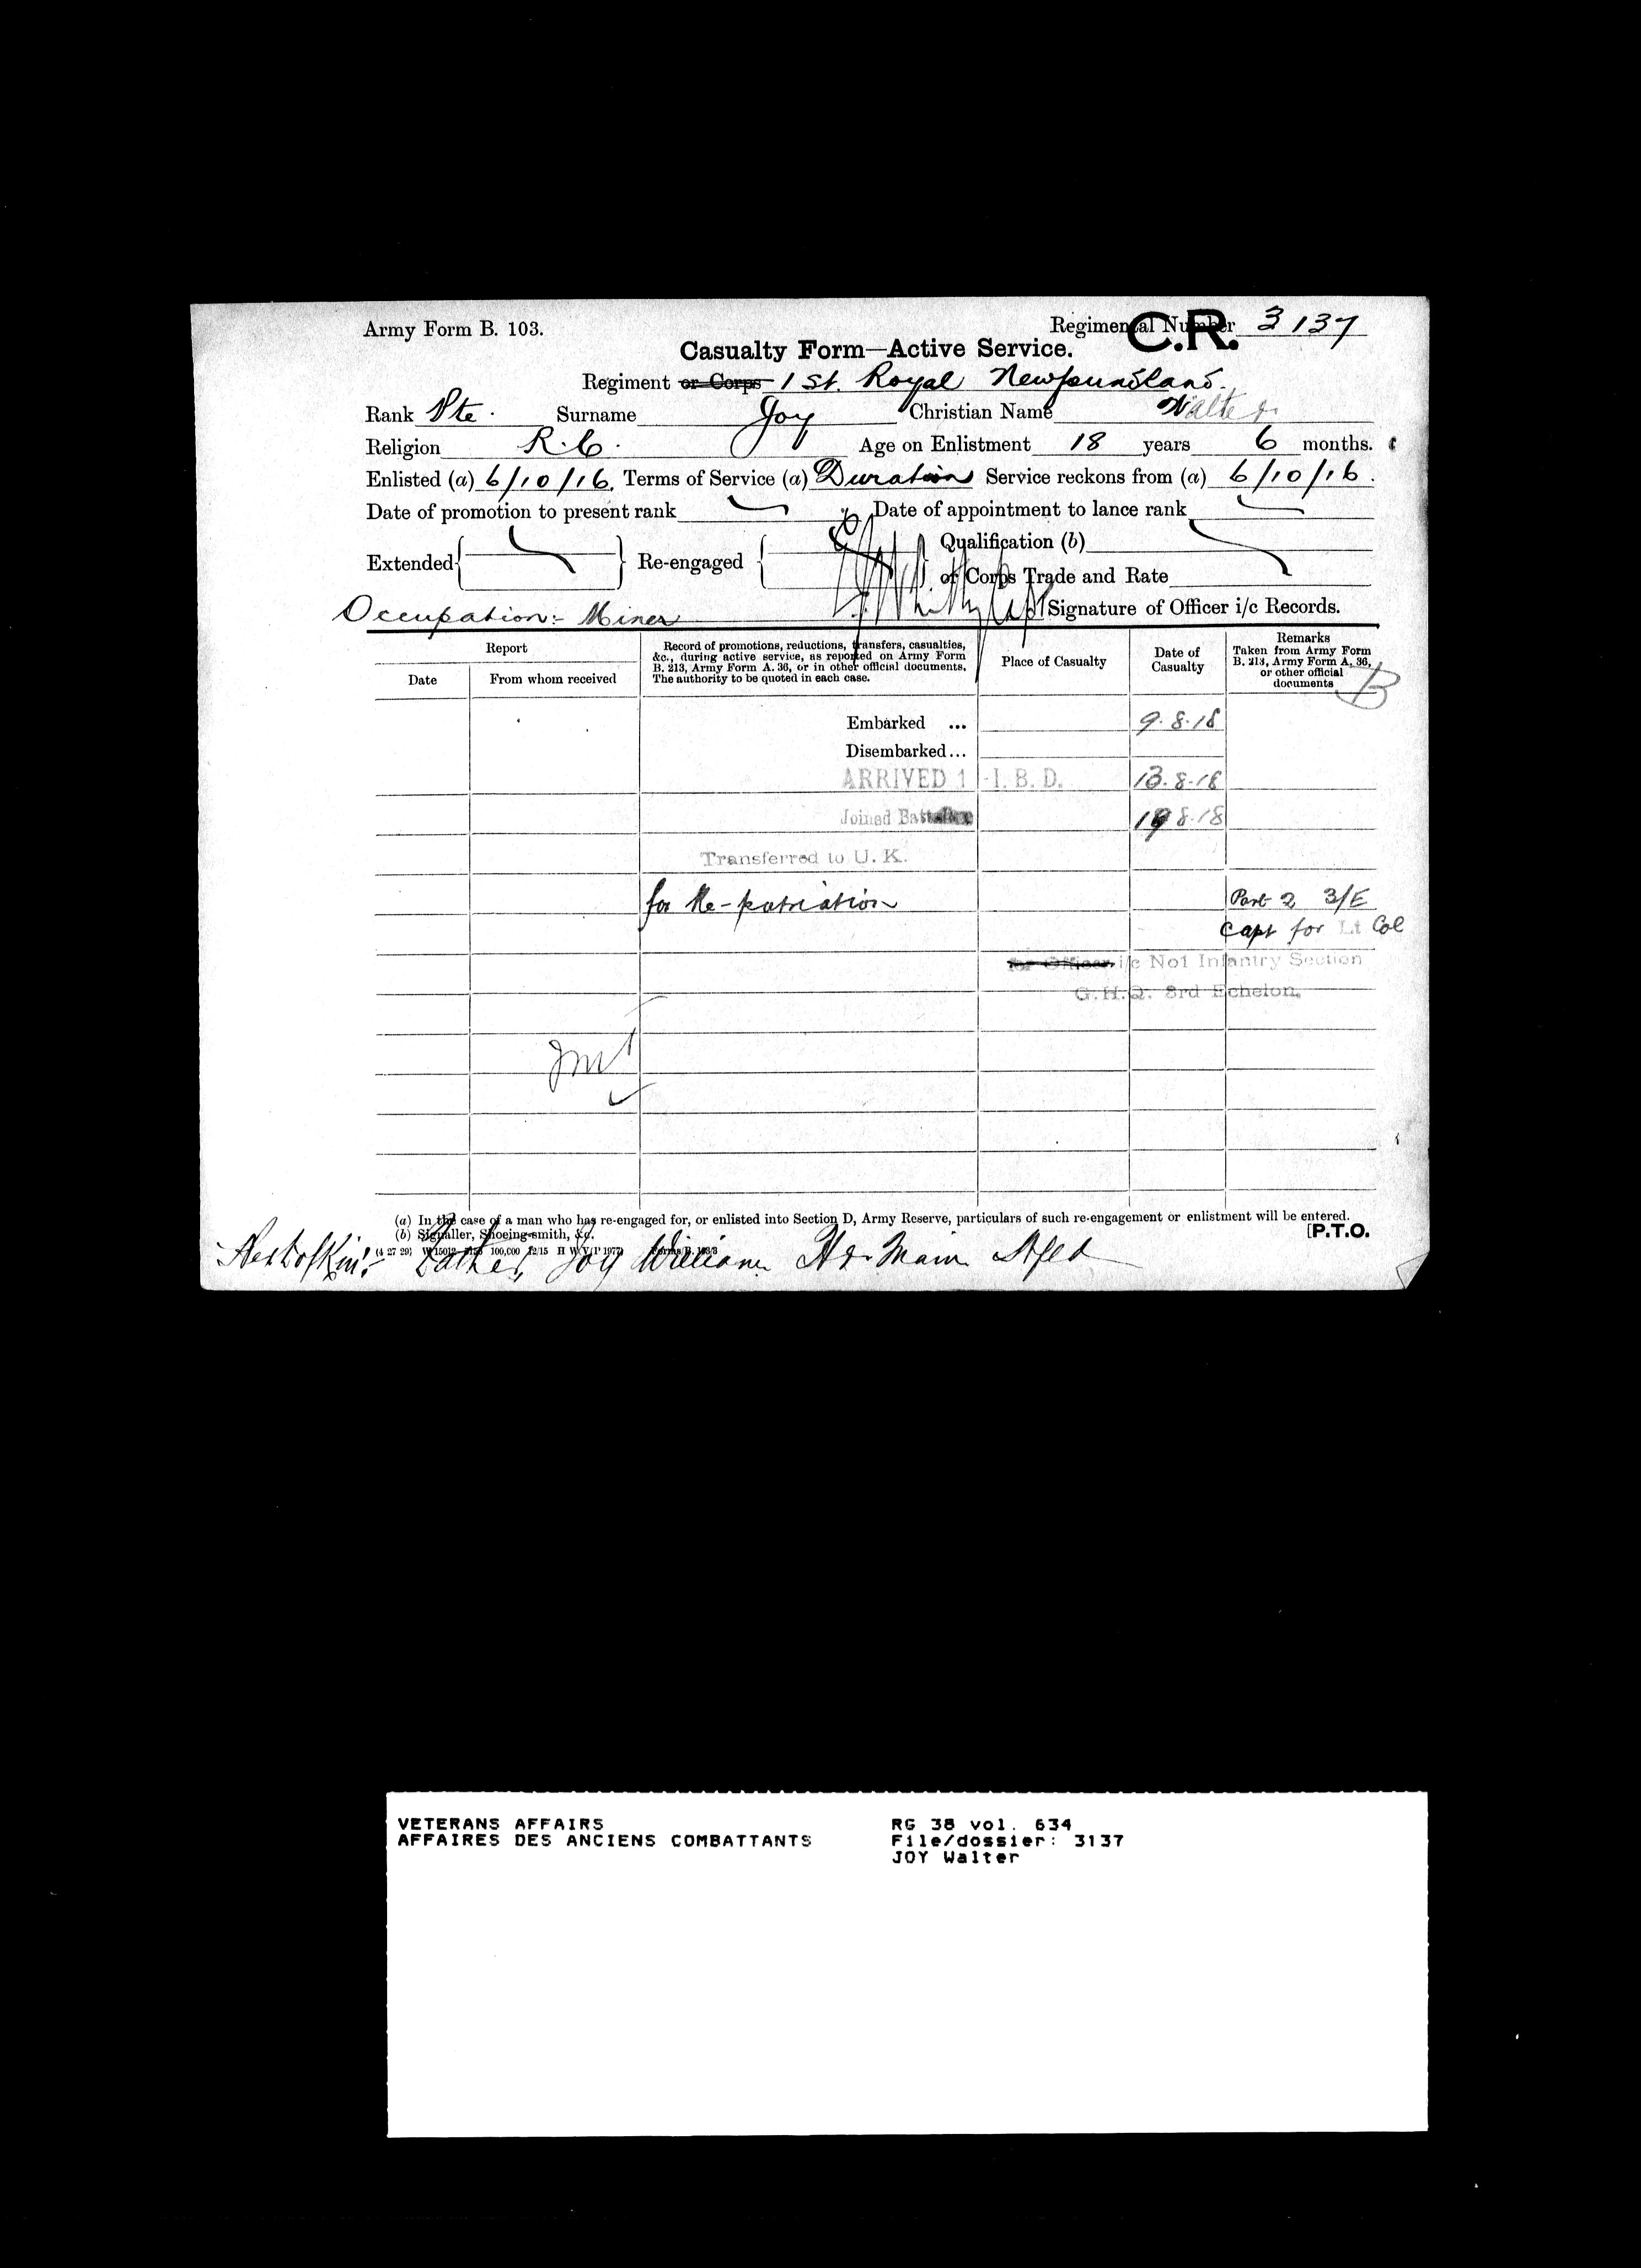 Army Form B. 103.
Regimental Number 3137
C.R.
Casualty Form—Active Service.
Regiment or Corps 1st. Royal Newfoundland.
Rank Pte. Surname Joy Christian Name Walter
Religion R.C. Age on Enlistment 18 years 6 months.
Enlisted (a) 6/10/16. Terms of Service (a) Duration Service reckons from (a) 6/10/16.
Date of promotion to present rank Date of appointment to lance rank
Extended Re-engaged Qualification (b)
or Corps Trade and Rate
Occupation:- Miner Capt Signature of Officer i/c Records.
Report
Date
From whom received
Record of promotions, reductions, transfers, casualties,
&c., during active service, as reported on Army Form
B. 213, Army Form A. 36, or in other official documents.
The authority to be quoted in each case.
Place of Casualty
Date of
Casualty
Remarks
Taken from Army Form
B. 213, Army Form A. 36,
or other official
documents
B
Embarked ... 9.8.18
Disembarked...
ARRIVED 1 I.B.D. 13.8.18
Joined Battalion 19 8.18
Transferred to U.K.
for Re-patriation Part 2 3/E
Capt for Lt Col
for Officer i/c No1 Infantry Section
G.H.Q. 3rd Echelon.
(a) In the case of a man who has re-engaged for, or enlisted into Section D, Army Reserve, particulars of such re-engagement or enlistment will be entered.
(b) Signaller, Shoeing-smith, &c.
[P.T.O.
(4 27 29) 100,000 12/15 H W V
Next of Kin:- Father, Joy William Hr Main Nfld
VETERANS AFFAIRS
AFFAIRES DES ANCIENS COMBATTANTS
RG 38 vol. 634
File/dossier: 3137
JOY Walter